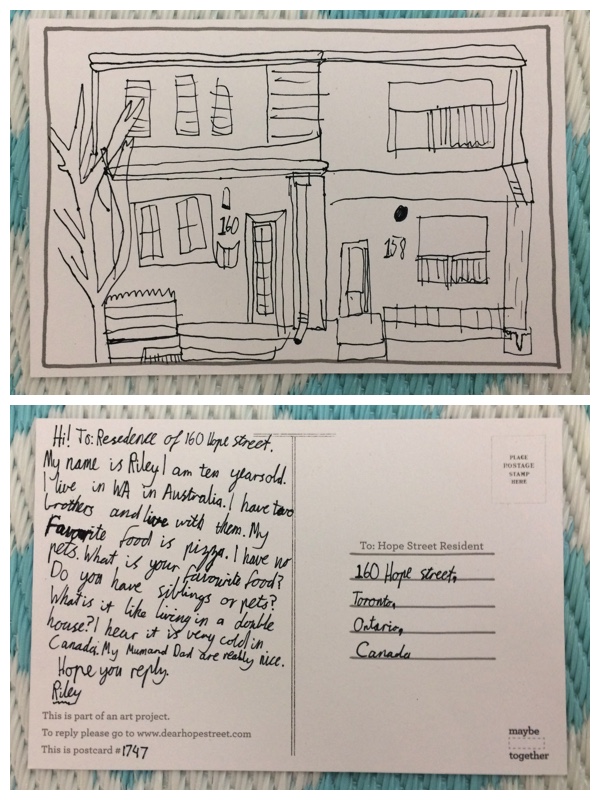 160
158
Hi! To: Resedence of 160 Hope street.
My name is Riley I am ten yearsold.
I live in WA in Australia. I have two
brothers and live with them. My
Favorite food is pizza. I have no
pets. What is your favourite food?
Do you have siblings or pets?
What is it like living in a double
house? I hear it is very cold in
Canada. My Mum and Dad are really nice.
Hope you reply.
Riley
This is part of an art project.
To reply please go to www.dearhopestreet.com
This is postcard #1747
PLACE
POSTAGE
STAMP
HERE
To: Hope Street Resident
160 Hope street,
Toronto,
Ontario,
Canada
maybe
together